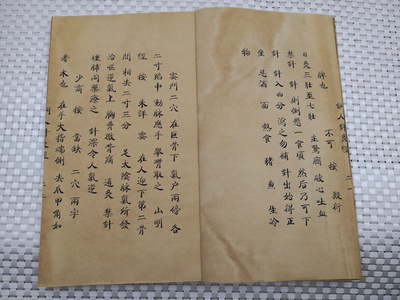 不可按穀行
脾也 主驚癇 破心吐血
日灸三壮至七壮
禁針 針則倒愁一食頃 然后乃可下
針 針入四分 瀉之勿補 針出始得正
生 忌酒 面 熱食 猪 魚 生冷
物
雲門二穴 在巨骨下 氣户兩傍 各
二寸陷中 動脉應手 舉臂取之 山明
經 按 未詳 雲 在人迎下第二骨
間 相去二寸三分 足太陰脉氣所發
治嘔逆氣上 胸脅徹背痛 通灸 禁針
腫肺同藥療之 針深令人氣逆
少商 按 當缺 二穴 兩字
者 木也 在手大指端側 去爪甲角如